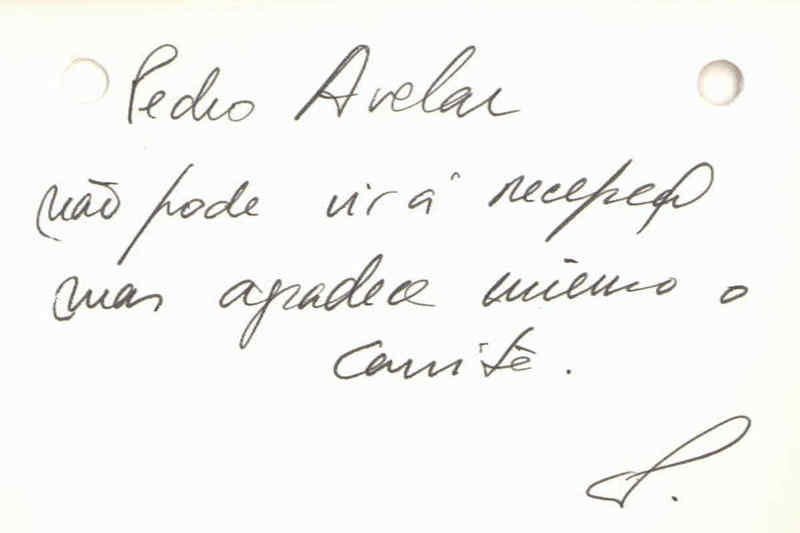 Pedro Avelar
não pode vir à recepção
mas agradece imenso o
convite.
P.